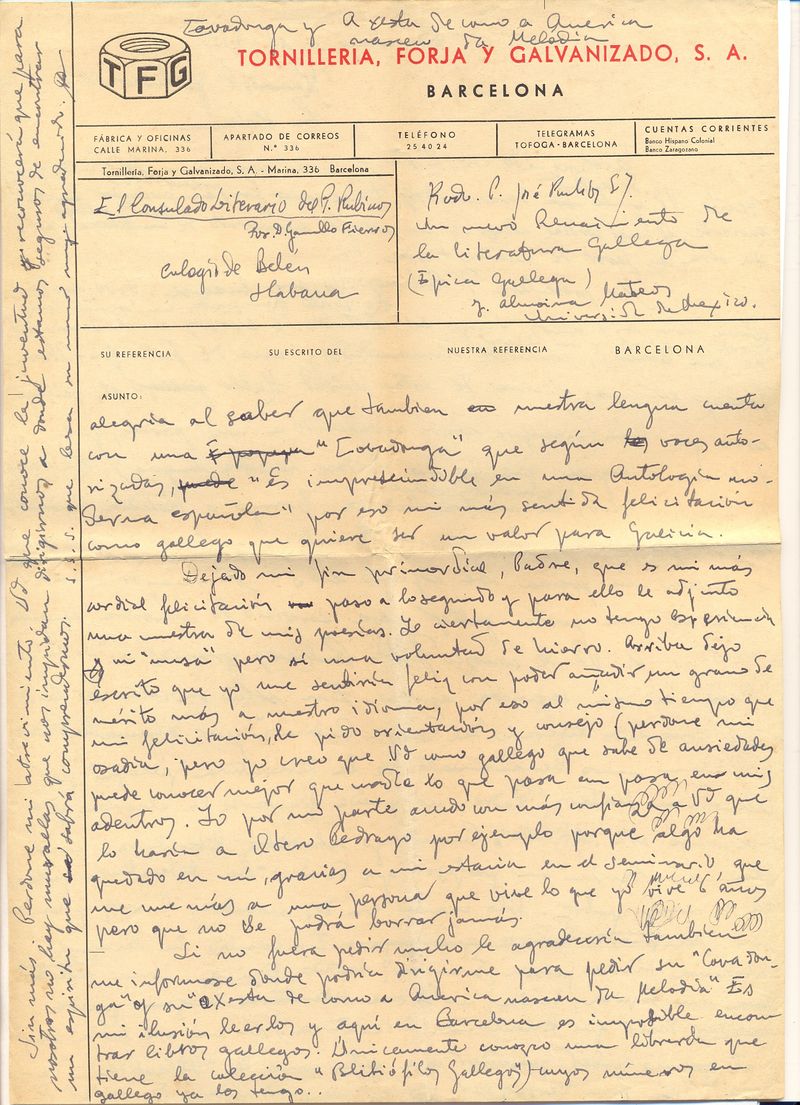 Covadonga y A xesta de como a America
nasceu da Melodia
TFG
TORNILLERIA, FORJA Y GALVANIZADO, S. A.
BARCELONA
FÁBRICA Y OFICINAS
CALLE MARINA, 336
APARTADO DE CORREOS
N.º 336
TELÉFONO
25 40 24
TELEGRAMAS
TOFOGA - BARCELONA
CUENTAS CORRIENTES
Banco Hispano Colonial
Banco Zaragozano
Tornillería, Forja y Galvanizado, S. A. - Marina, 336 Barcelona
El Consulado Literario del P. Rubinos
Por D. Gamallo Fierros
Colegio de Belén
Habana
Rvdo. P. José Rubinos S.J.
Un nuevo Renacimiento de
la literatura Gallega
(Épica Gallega)
y. almoina Mateos
Universidad de Mexico.
SU REFERENCIA
SU ESCRITO DEL
NUESTRA REFERENCIA
BARCELONA
ASUNTO:
alegria al saber que tambien en nuestra lengua cuenta
con una Epopeya "Covadonga" que según las voces auto-
rizadas, puede "Es imprescindible en una Antología mo-
derna española" por eso mi más sentida felicitación
como gallego que quiere ser un valor para Galicia.
Dejado mi fin primordial, Padre, que es mi más
cordial felicitación paso a lo segundo y para ello le adjunto
una muestra de mis poesías. Yo ciertamente no tengo experiencia
ni "musa" pero sí una voluntad de hierro. Arriba dejo
escrito que yo me sentiría feliz con poder añadir un grano de
mérito más a nuestro idioma, por eso al mismo tiempo que
mi felicitación, le pido orientación y consejo (perdone mi
osadía, pero yo creo que Vd como gallego que sabe de ansiedades
puede conocer mejor que nadie lo que pasa en mis
adentros. Yo por mi parte acudo con más confianza a Vd que
lo haría a Otero Pedrayo por ejemplo porque algo ha
quedado en mí, gracias a mi estancia en el seminario, que
me une más a una persona que vive lo que yo viví 6 años
pero que no se podrá borrar jamás.
Si no fuera pedir mucho le agradecería tambien
me informase donde podría dirigirme para pedir su "Covadon-
ga" y su "A xesta de como a America nasceu da Melodía" Es
mi ilusión leerlos y aquí en Barcelona es imposible encon
trar libros gallegos. Únicamente conozco una librería que
tiene la colección "Bibliófilos Gallegos" cuyos números en
gallego ya los tengo..
Sin más Perdone mi atrevimiento, Vd que conoce la juventud y reconocerá que para
nosotros no hay murallas que nos impidan dirigirnos a donde estamos seguros de encontrar
un espíritu que sabrá comprendernos. S.S.S. que besa su mano muy agradecido.